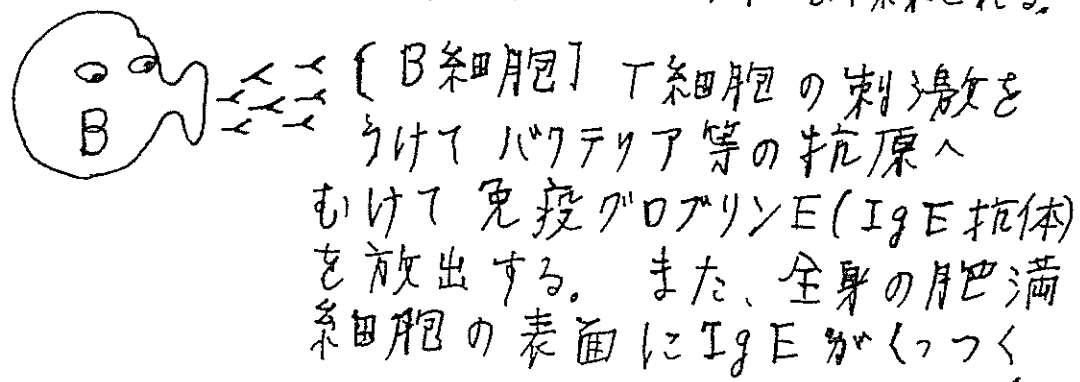 される。
B
[B細胞] T細胞の刺激を
うけてバクテリア等の抗原へ
むけて免疫グロブリンE(IgE抗体)
を放出する。また、全身の肥満
細胞の表面にIgEがくっつく